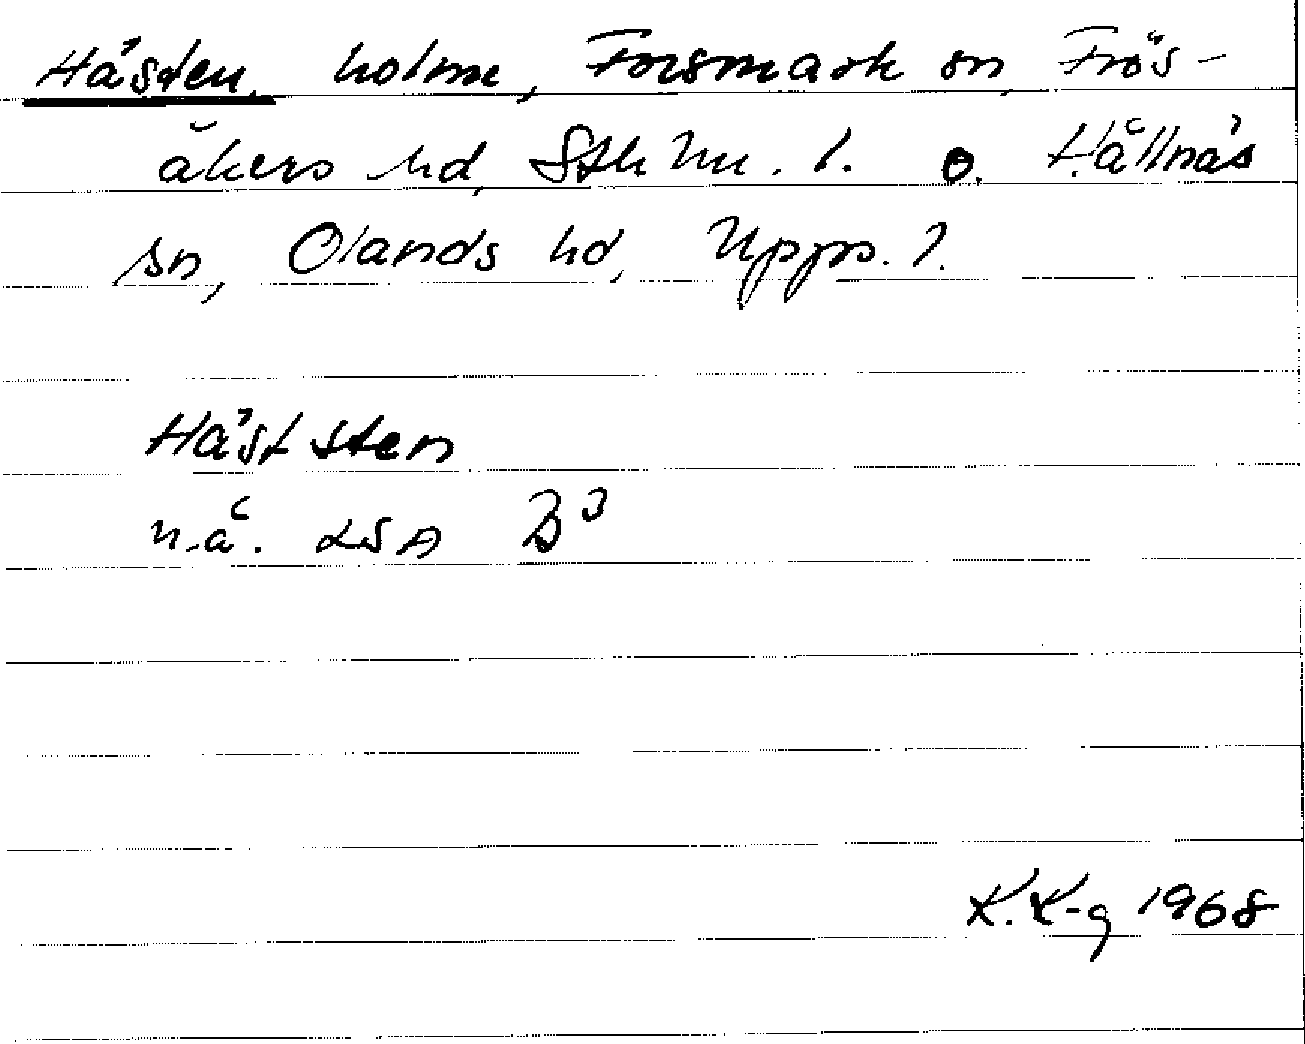 Hästen, holme, Forsmark sn, Frös-
åkers hd, Sthlms. l. o. Hållnäs
sn, Olands hd, Upps. l.
Häst sten
n.å. LSA B3
K. K-g 1968